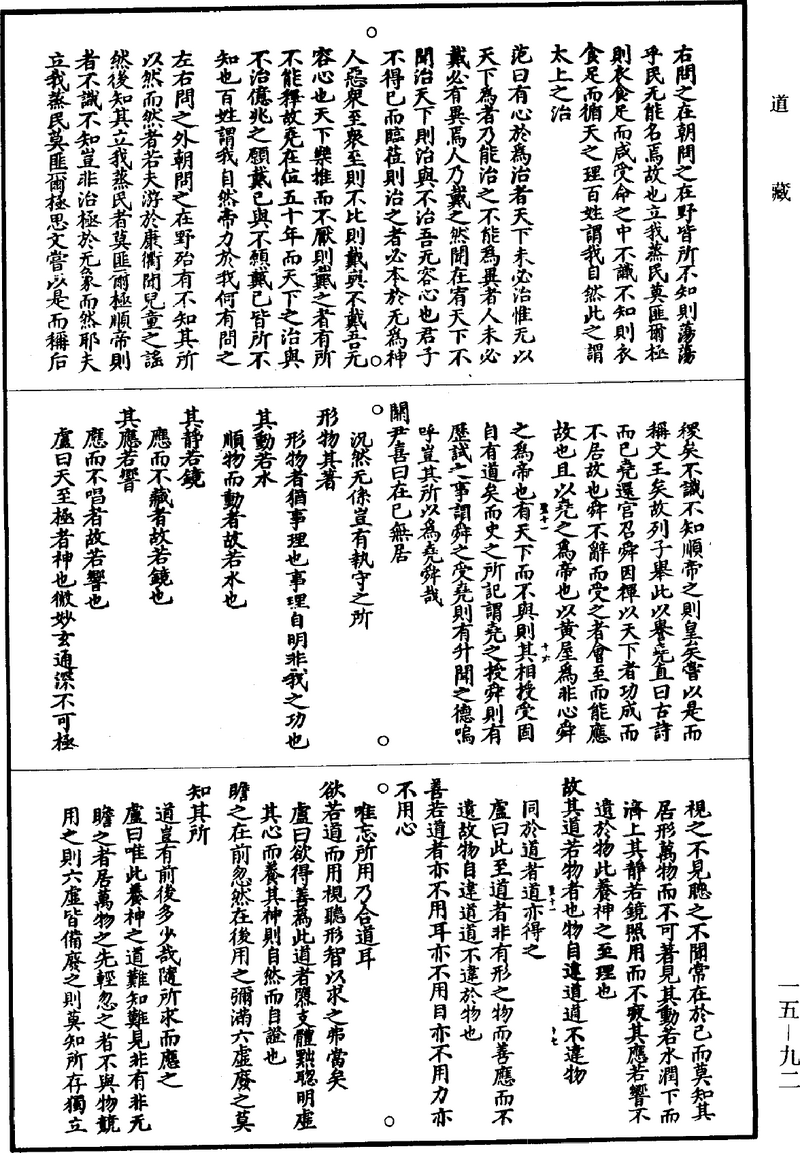 道藏
右問之在朝問之在野皆所不知則蕩蕩
乎民无能名焉故也立我蒸民莫匪爾極
則衣食足而咸受命之中不識不知則衣
食足而循天之理百姓謂我自然此之謂
太上之治
范曰有心於為治者天下未必治惟无以
天下為者乃能治之不能為異者人未必
戴必有異焉人乃戴之然聞在宥天下不
聞治天下則治與不治吾无容心也君子
不得已而臨莅則治之者必本於无為神
人惡衆至衆至則不比則戴與不戴吾无
容心也天下樂推而不厭則戴之者有所
不能釋故堯在位五十年而天下之治與
不治億兆之願戴已與不願戴已皆所不
知也百姓謂我自然帝力於我何有問之
左右問之外朝問之在野殆有不知其所
以然而然者若夫游於康衢聞兒童之謠
然後知其立我蒸民者莫匪爾極順帝則
者不識不知豈非治極於无象而然耶夫
立我蒸民莫匪爾極思文嘗以是而稱后
稷矣不識不知順帝之則皇矣嘗以是而
稱文王矣故列子舉此以譽堯直曰古詩
而已堯還宮召舜因禪以天下者功成而
不居故也舜不辭而受之者會至而能應
故也且以堯之為帝也以黃屋為非心舜
之為帝也有天下而不與則其相授受固
自有道矣而史之所記謂堯之授舜則有
歷試之事謂舜之受堯則有升聞之德嗚
呼豈其所以為堯舜哉
關尹喜曰在己無居
汎然无係豈有執守之所
形物其著
形物者猶事理也事理自明非我之功也
其動若水
順物而動者故若水也
其靜若鏡
應而不藏者故若鏡也
其應若響
應而不唱者故若響也
盧曰天至極者神也微妙玄通深不可極
視之不見聽之不聞常在於己而莫知其
居形萬物而不可著見其動若水潤下而
濟上其靜若鏡照用而不疲其應若響不
遺於物此養神之至理也
故其道若物者也物自違道道不違物
同於道者道亦得之
盧曰此至道者非有形之物而善應而不
遺故物自違道道不違於物也
善若道者亦不用耳亦不用目亦不用力亦
不用心
唯忘所用乃合道耳
欲若道而用視聽形智以求之弗當矣
盧曰欲得善為此道者隳支體黜聰明虛
其心而養其神則自然而自證也
瞻之在前忽然在後用之彌滿六虛廢之莫
知其所
道豈有前後多少哉隨所求而應之
盧曰唯此養神之道難知難見非有非无
瞻之者居萬物之先輕忽之者不與物競
用之則六虛皆備廢之則莫知所存獨立
一五－九二